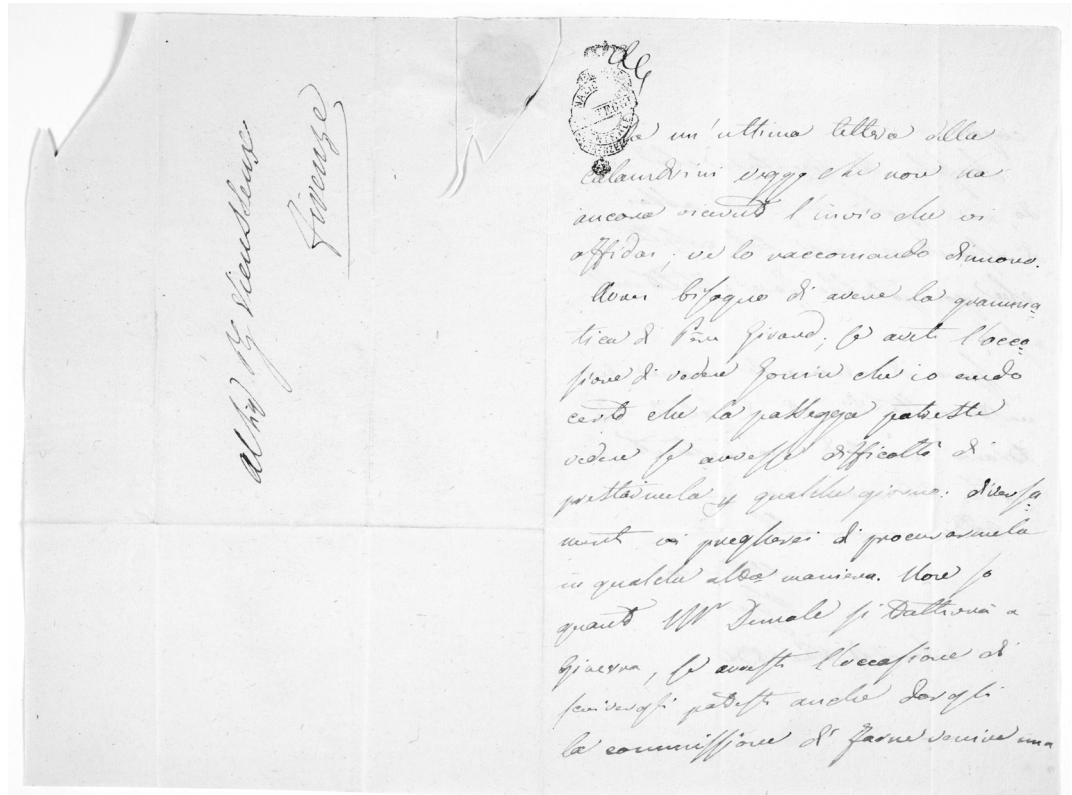 Al Sig. Vieusseux
Firenze
Da un'ultima lettera della
Calandrini veggo che non ha
ancora ricevuto l'invio che vi
affidai; ve lo raccomando dinuovo.
Avrei bisogno di avere la gramma-
tica di Père Girard; se avete l'occa-
sione di vedere Gonin che io credo
certo che la possegga potreste
vedere se avesse difficoltà di
prestarmela p qualche giorno: diversa-
mente vi pregherei di procurarmela
in qualche altra maniera. Non so
quanto Mr Demole si tratterrà a
Ginevra, se aveste l'occasione di
scrivergli potreste anche dargli
la commissione di farne venire una